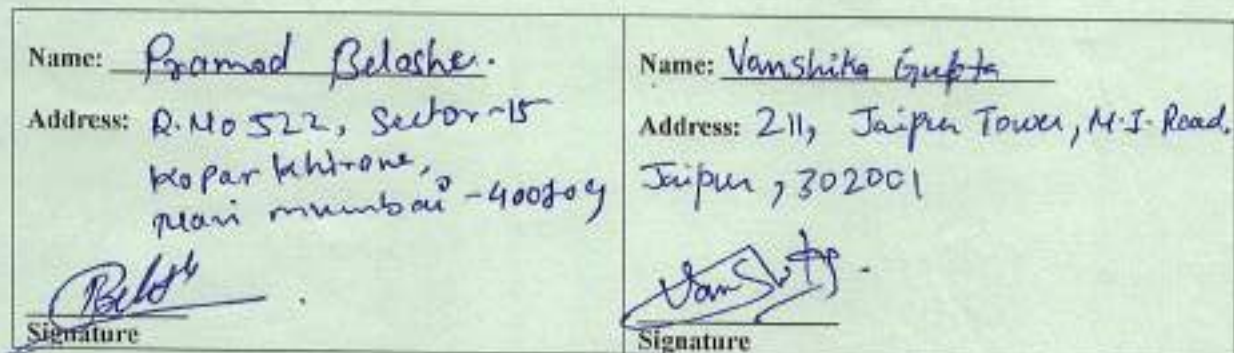 Name: Pramod Belashe.
Address: R.No 522, Sector-15
Kopar Khirane,
Navi mumbai - 400709
Signature
Name: Vanshika Gupta
Address: 211, Jaipur Tower, M.I. Road.
Jaipur, 302001
Signature